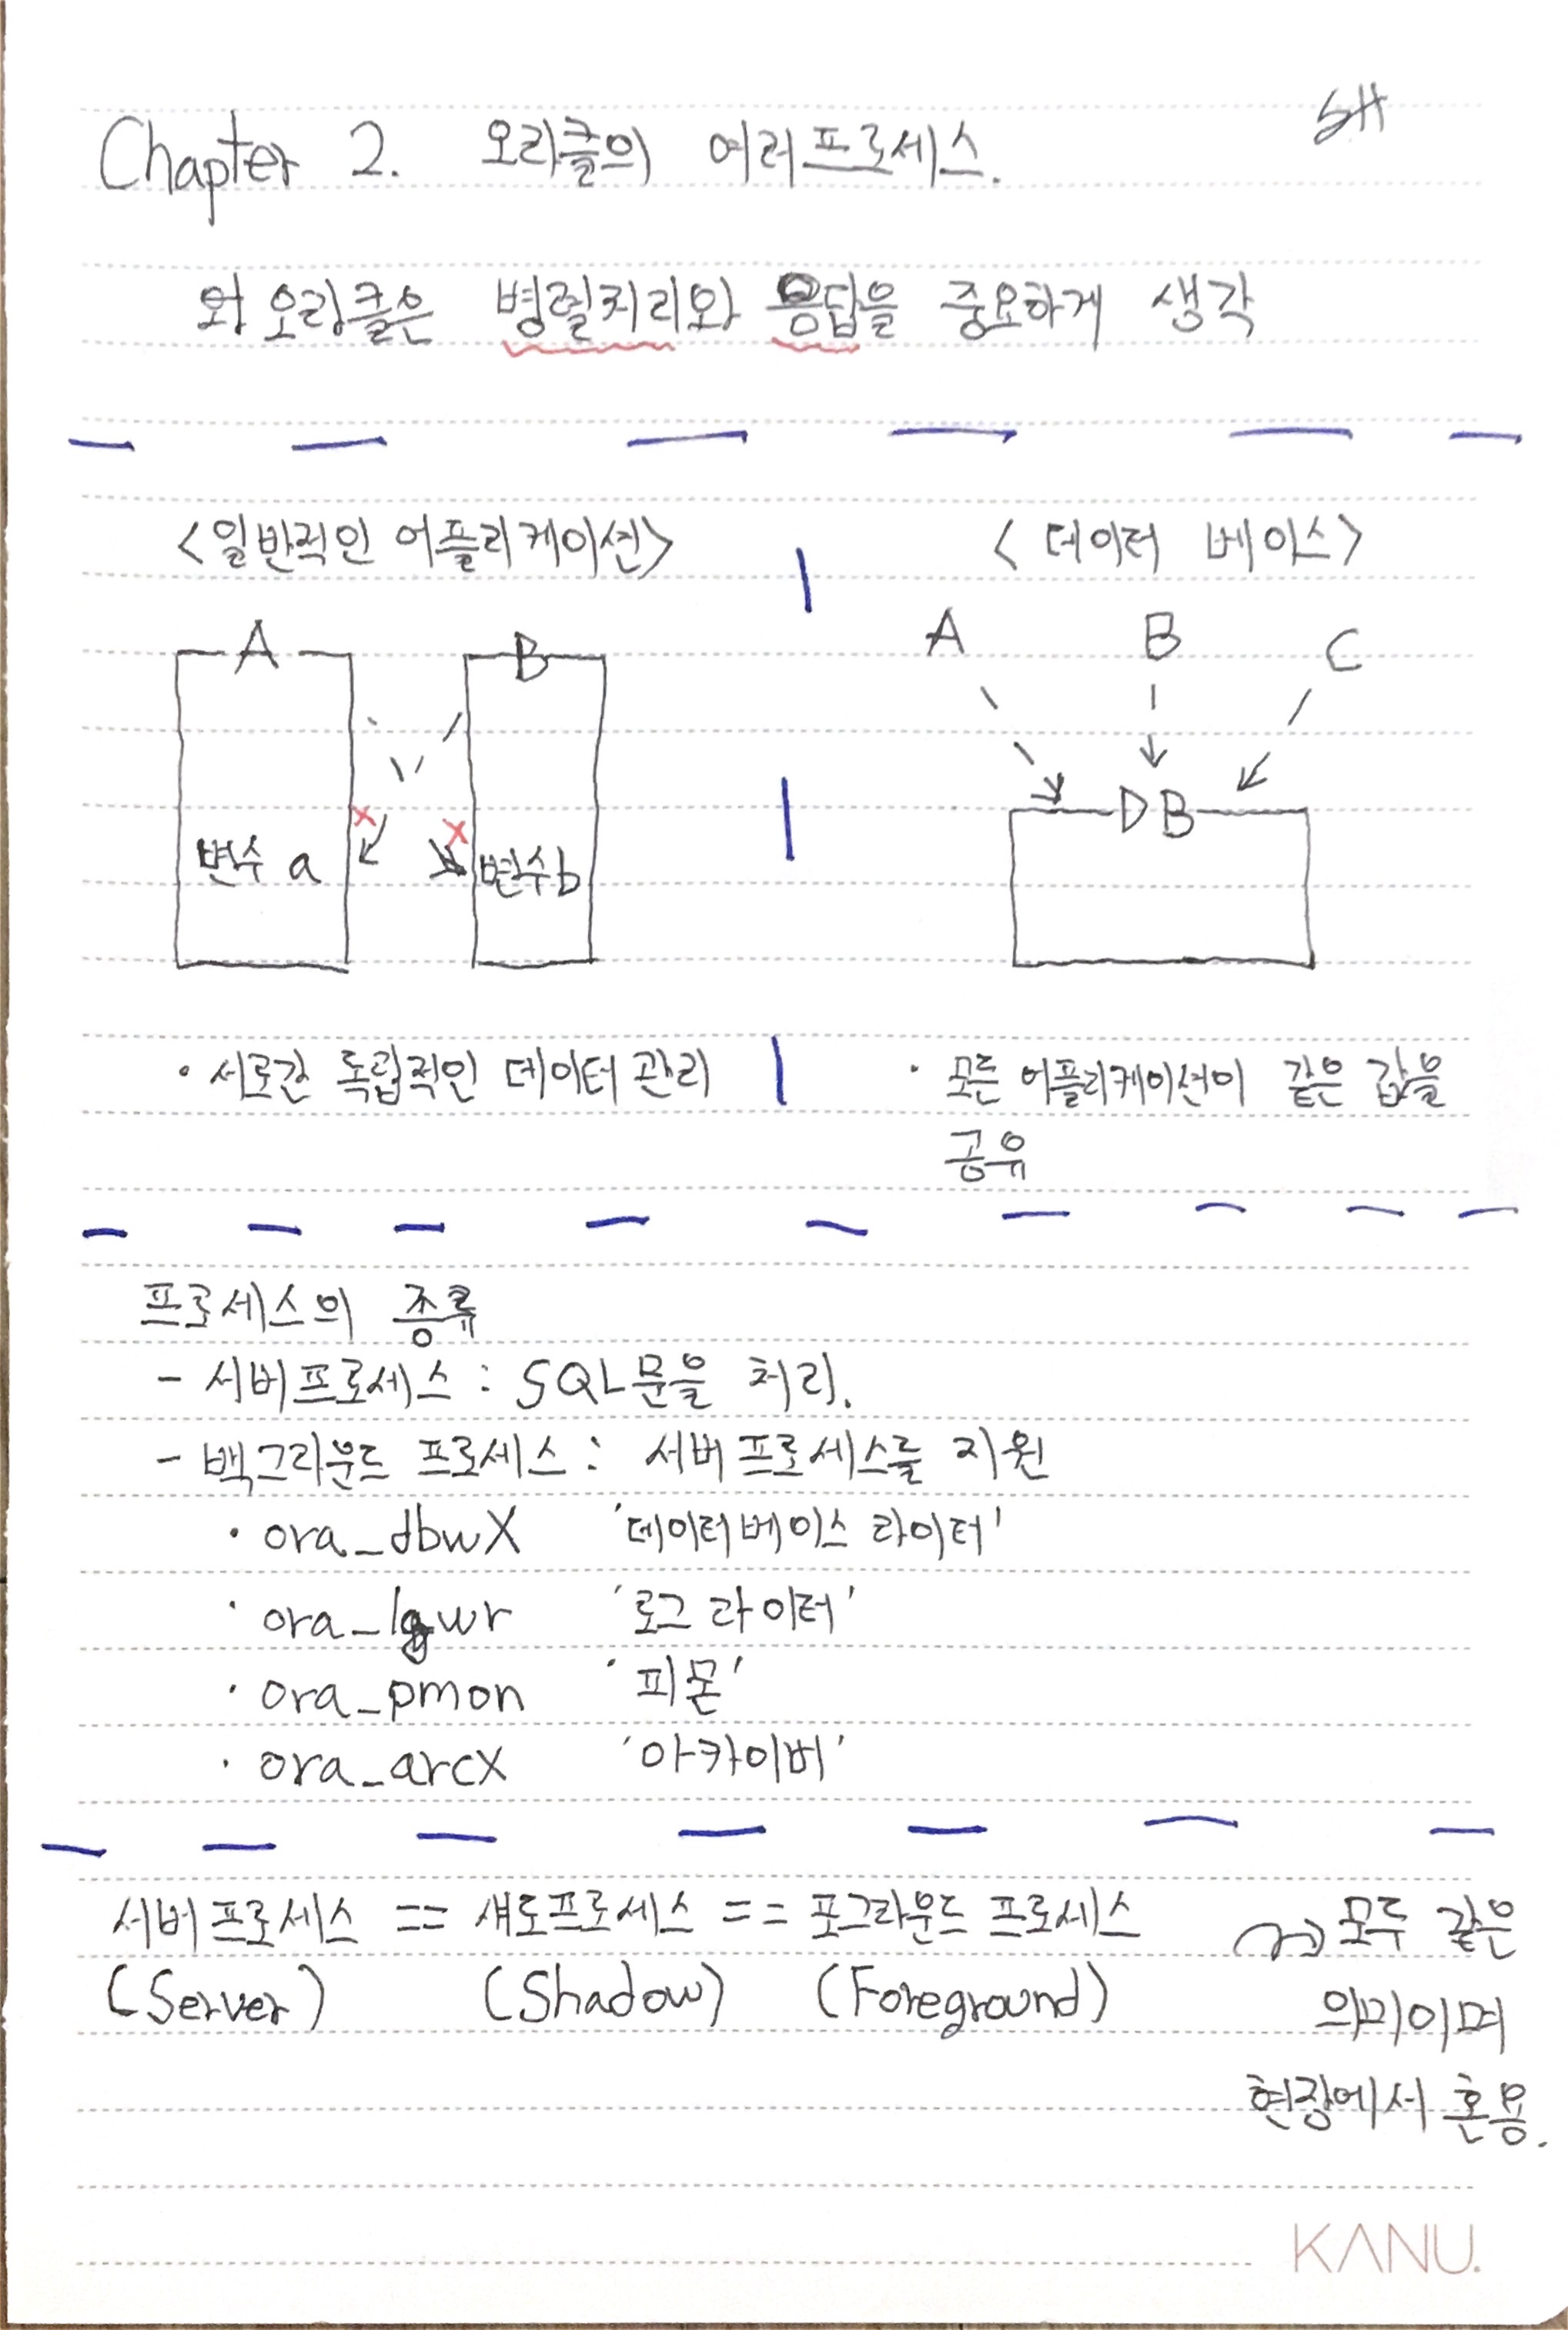 SH
Chapter 2. 오라클의 여러프로세스.
와 오라클은 병렬처리와 응답을 중요하게 생각
<일반적인 어플리케이션>
A B
변수 a 변수b
· 서로간 독립적인 데이터 관리
< 데이터 베이스>
A B C
DB
· 모든 어플리케이션이 같은 값을
공유
프로세스의 종류
- 서버프로세스 : SQL문을 처리.
- 백그라운드 프로세스 : 서버프로세스를 지원
· ora_dbwX '데이터베이스 라이터'
· ora_lgwr '로그 라이터'
· ora_pmon '피몬'
· ora_arcX '아카이버'
서버프로세스 == 섀도프로세스 == 포그라운드 프로세스
(Server) (Shadow) (Foreground)
~> 모두 같은
의미이며
현장에서 혼용.
KANU.